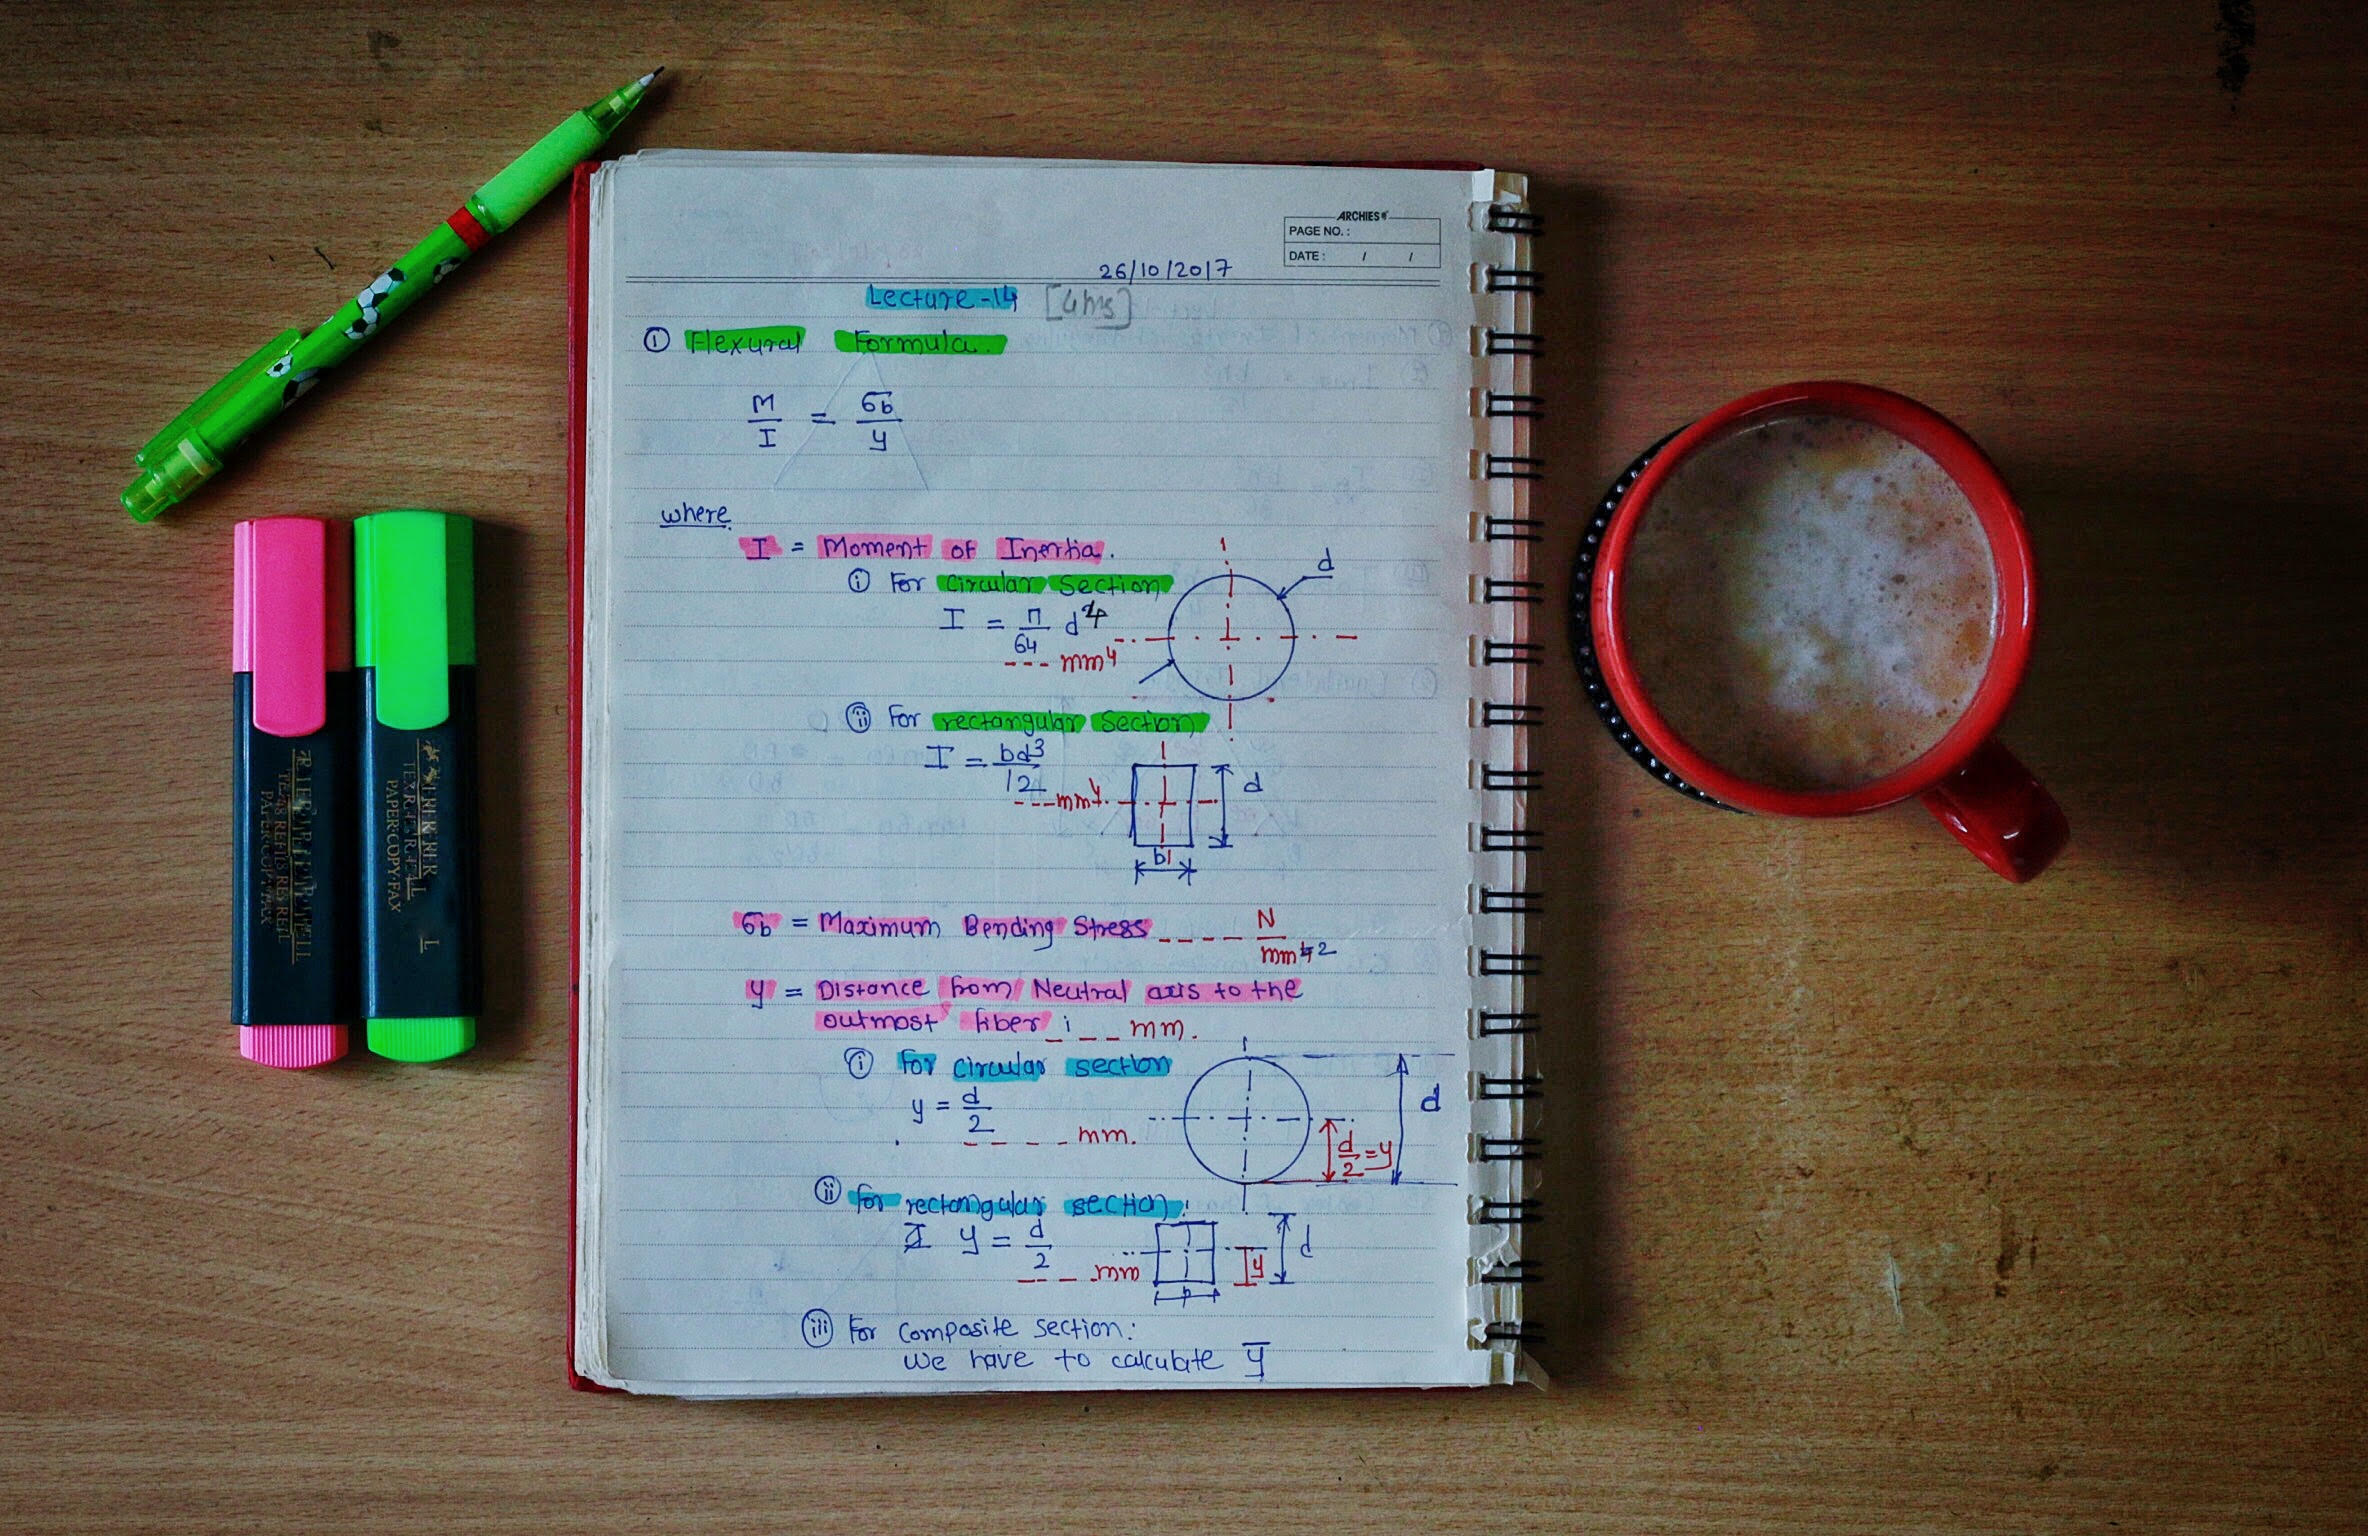 ARCHIES
PAGE NO. :
DATE : / /
26/10/2017
Lecture-14 [4hrs]
① Flexural Formula.
M/I = σb/y
where,
I = Moment of Inertia.
ⓘ For circular section
d
I = π/64 d4
--- mm4
ⓘⓘ For rectangular section
I = bd3/12
--- mm4
d
b
σb = Maximum Bending Stress ---- N/mm2
y = Distance from Neutral axis to the
outmost fiber : --- mm.
ⓘ For circular section
y = d/2
---- mm.
d
d/2 = y
ⓘⓘ for rectangular section:
y = d/2
---- mm
y
d
b
ⓘⓘⓘ For composite section:
we have to calculate y̅
PAPER·COPY·FAX